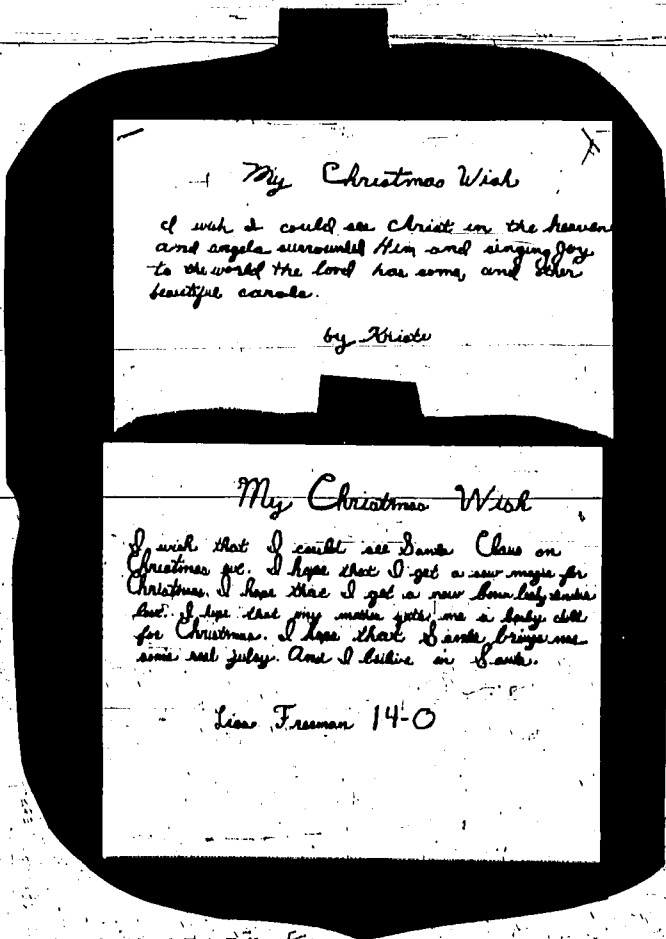 My Christmas Wish
I wish I could see Christ in the heaven
and angels surrounded Him and singing Joy
to the world the lord has come, and other
beautiful carols.
by Kriste
My Christmas Wish
I wish that I could see Santa Claus on
Christmas eve. I hope that I get a new for
Christmas. I hope that I get a new
I hope that my mother gets me a baby doll
for Christmas. I hope that Santa brings me
some real julry. And I bilive in Santa.
Lisa Freeman 14-0